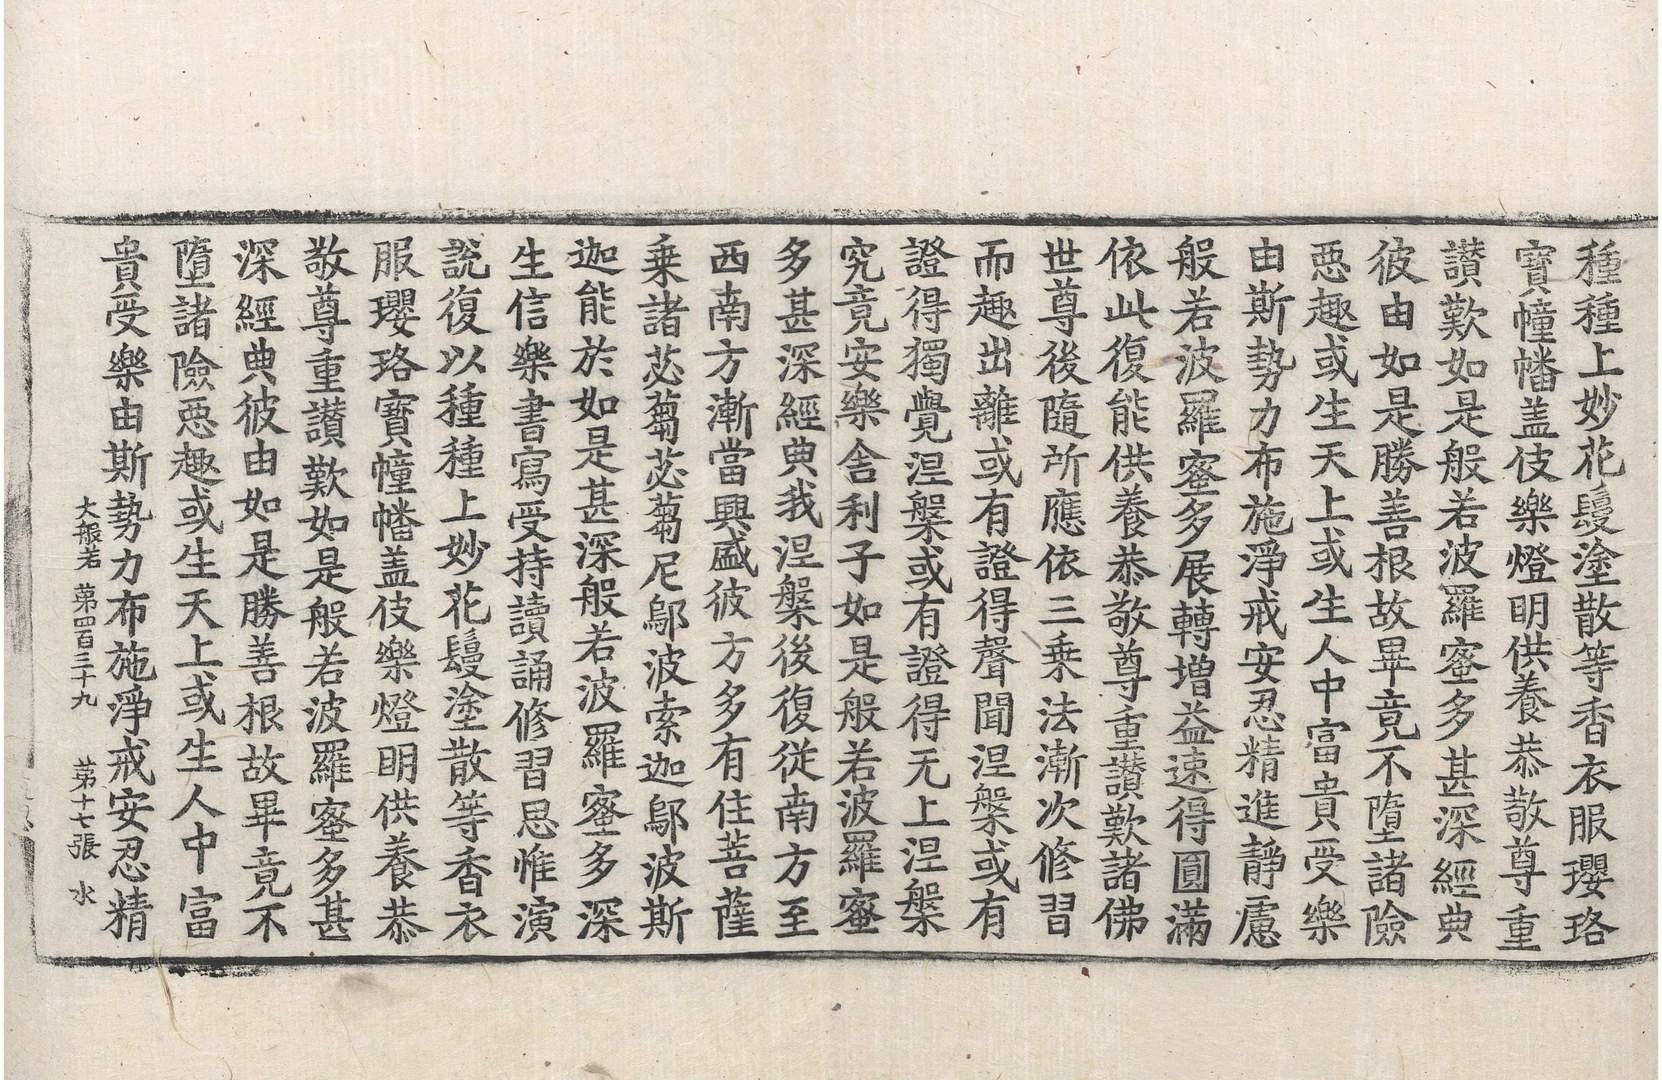 種種上妙花鬘塗散等香衣服瓔珞
寶幢幡盖伎樂燈明供養恭敬尊重
讃歎如是般若波羅蜜多甚深經典
彼由如是勝善根故畢竟不墮諸險
惡趣或生天上或生人中富貴受樂
由斯勢力布施淨戒安忍精進靜慮
般若波羅蜜多展轉增益速得圓滿
依此復能供養恭敬尊重讃歎諸佛
世尊後隨所應依三乗法漸次修習
而趣出離或有證得聲聞涅槃或有
證得獨覺涅槃或有證得无上涅槃
究竟安樂舍利子如是般若波羅蜜
多甚深經典我涅槃後復從南方至
西南方漸當興盛彼方多有住菩薩
乗諸苾蒭苾蒭尼鄔波索迦鄔波斯
迦能於如是甚深般若波羅蜜多深
生信樂書寫受持讀誦修習思惟演
說復以種種上妙花鬘塗散等香衣
服瓔珞寶幢幡盖伎樂燈明供養恭
敬尊重讃歎如是般若波羅蜜多甚
深經典彼由如是勝善根故畢竟不
墮諸險惡趣或生天上或生人中富
貴受樂由斯勢力布施淨戒安忍精
大般若 第四百三十九 第十七張 水